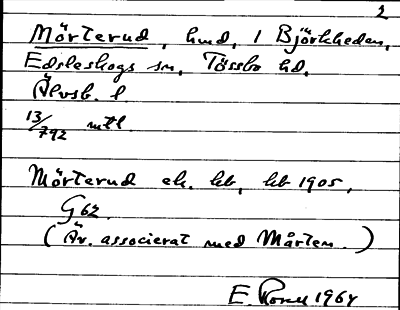 2
Mörterud, hmd, 1 Björkheden,
Edsleskogs sn, Tössbo hd,
Älvsb. l.
13/792 mtl.
Mörterud ek. kb, kb 1905,
G62.
(Är. associerat med Mårten.)
E. 1964